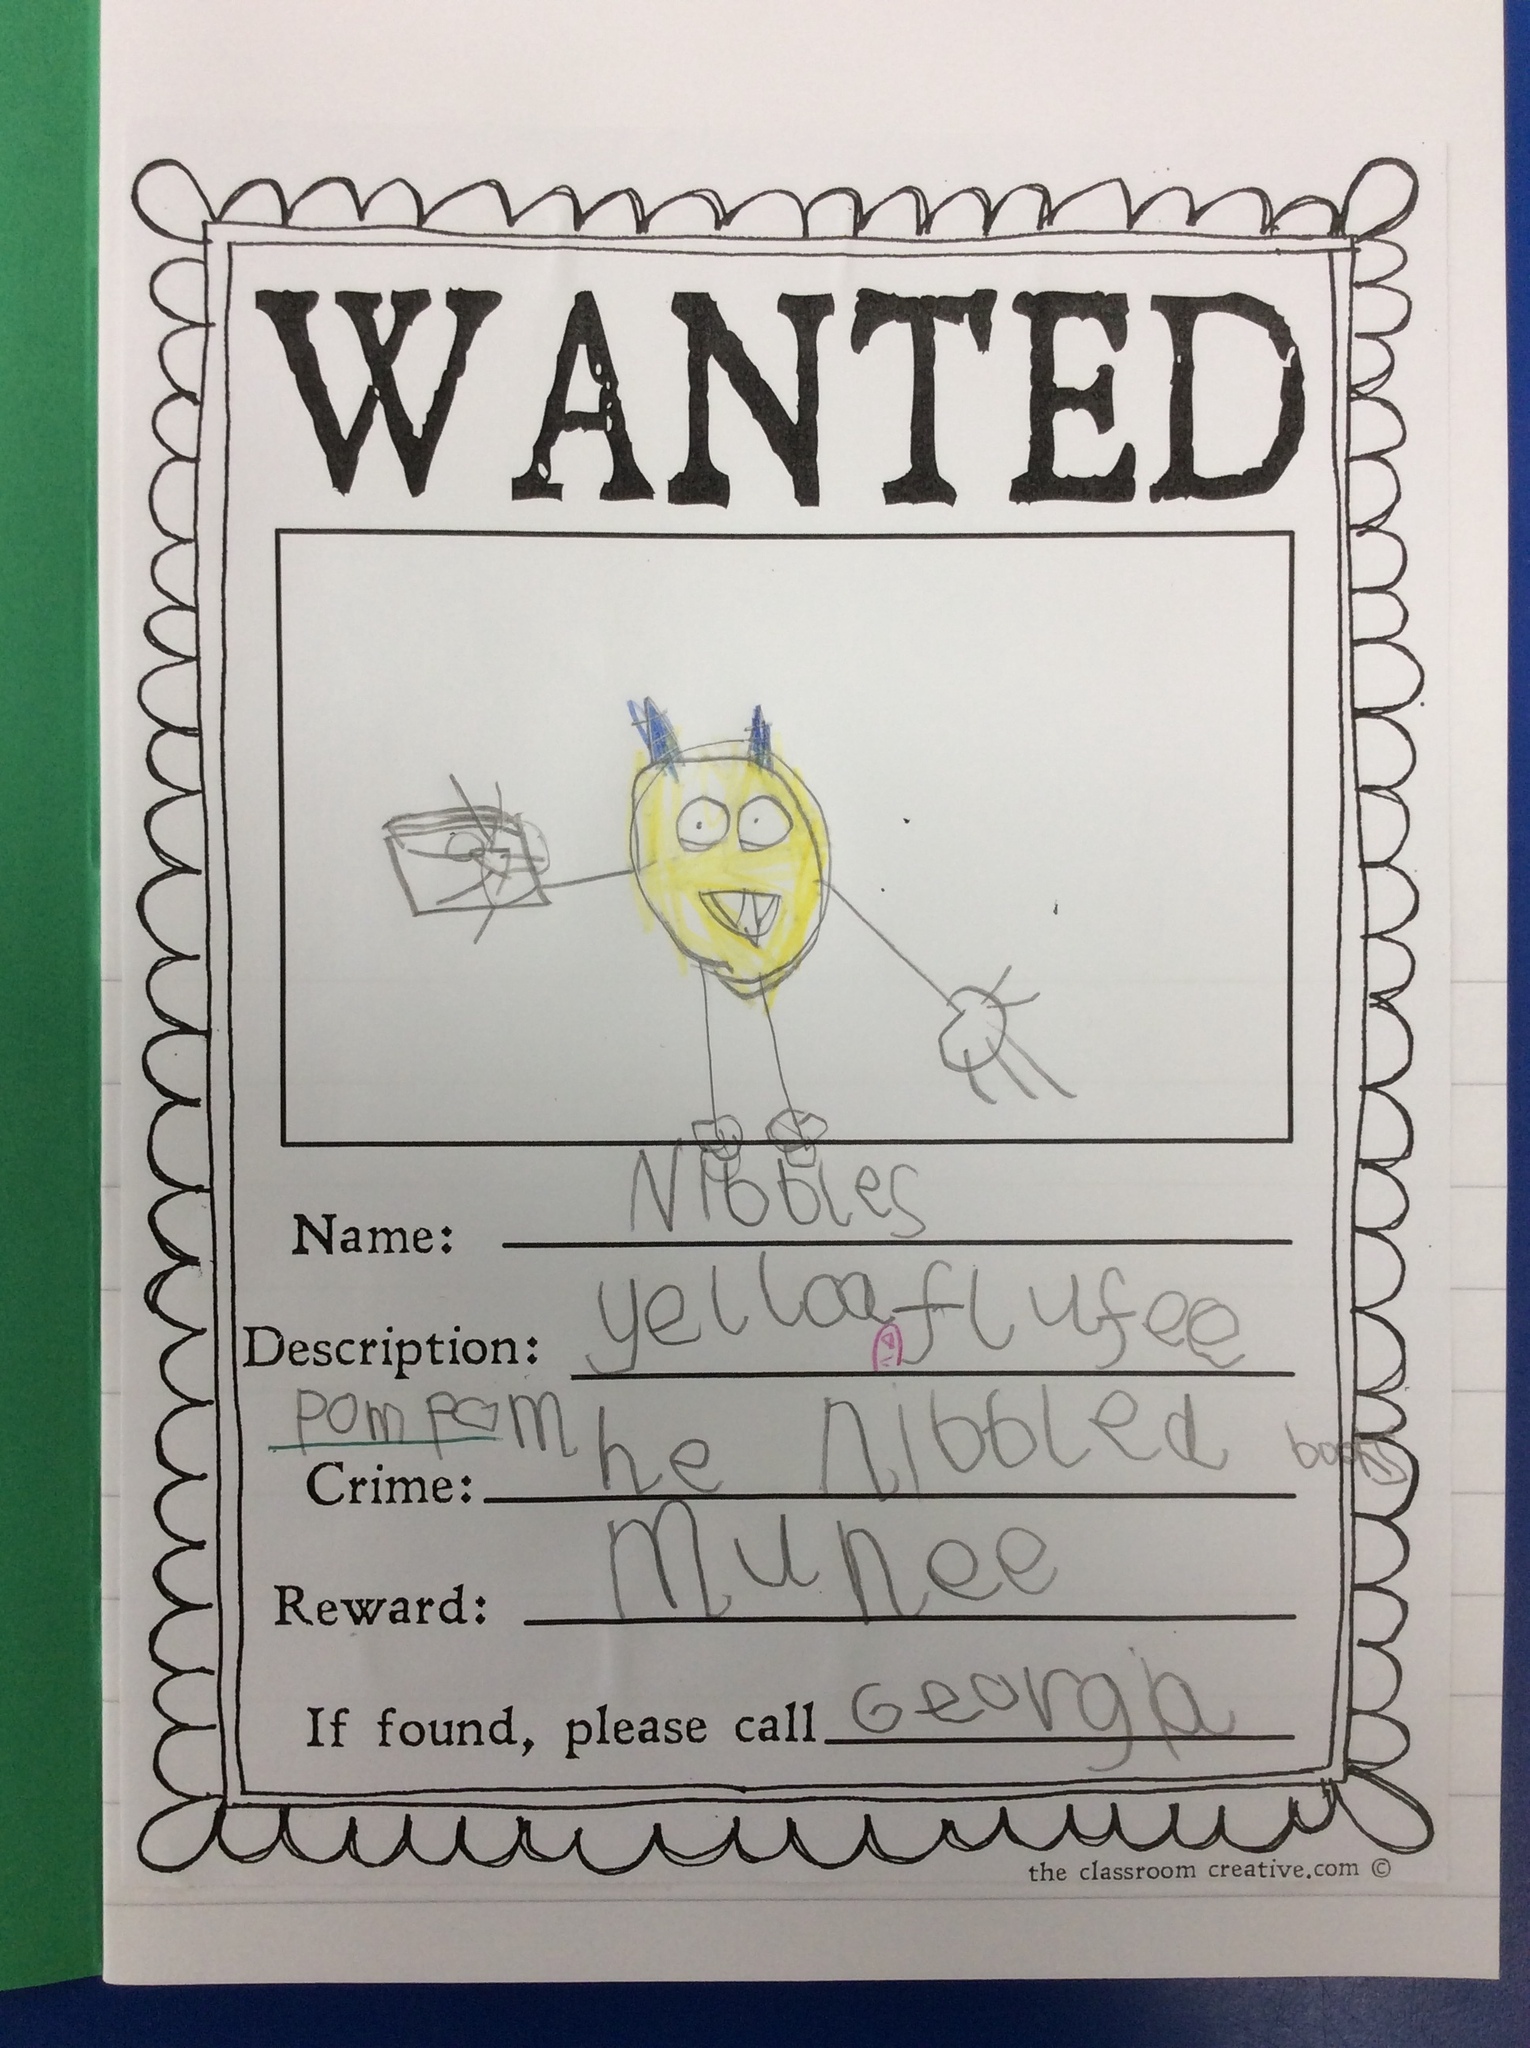 WANTED
Name: Nibbles
Description: yelloa flufee
pompom
Crime: he nibbled books
Reward: Munee
If found, please call Georgia
the classroom creative.com ©